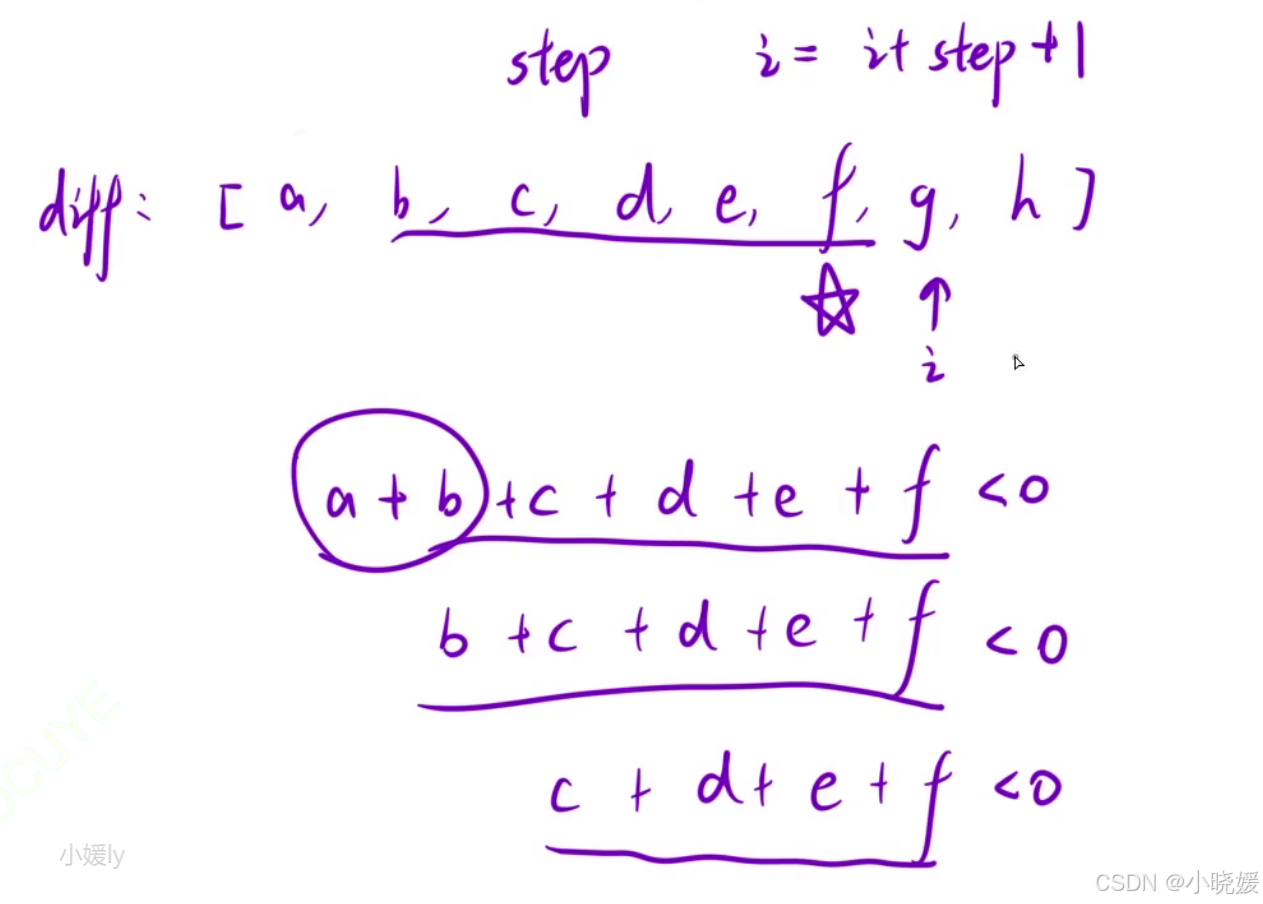 step i = i+ step+1
diff: [ a, b, c, d, e, f, g, h ]
i
a + b +c + d +e + f <0
b +c + d +e + f <0
c + d+ e + f <0
OCUYE
小媛ly
CSDN @小晓媛